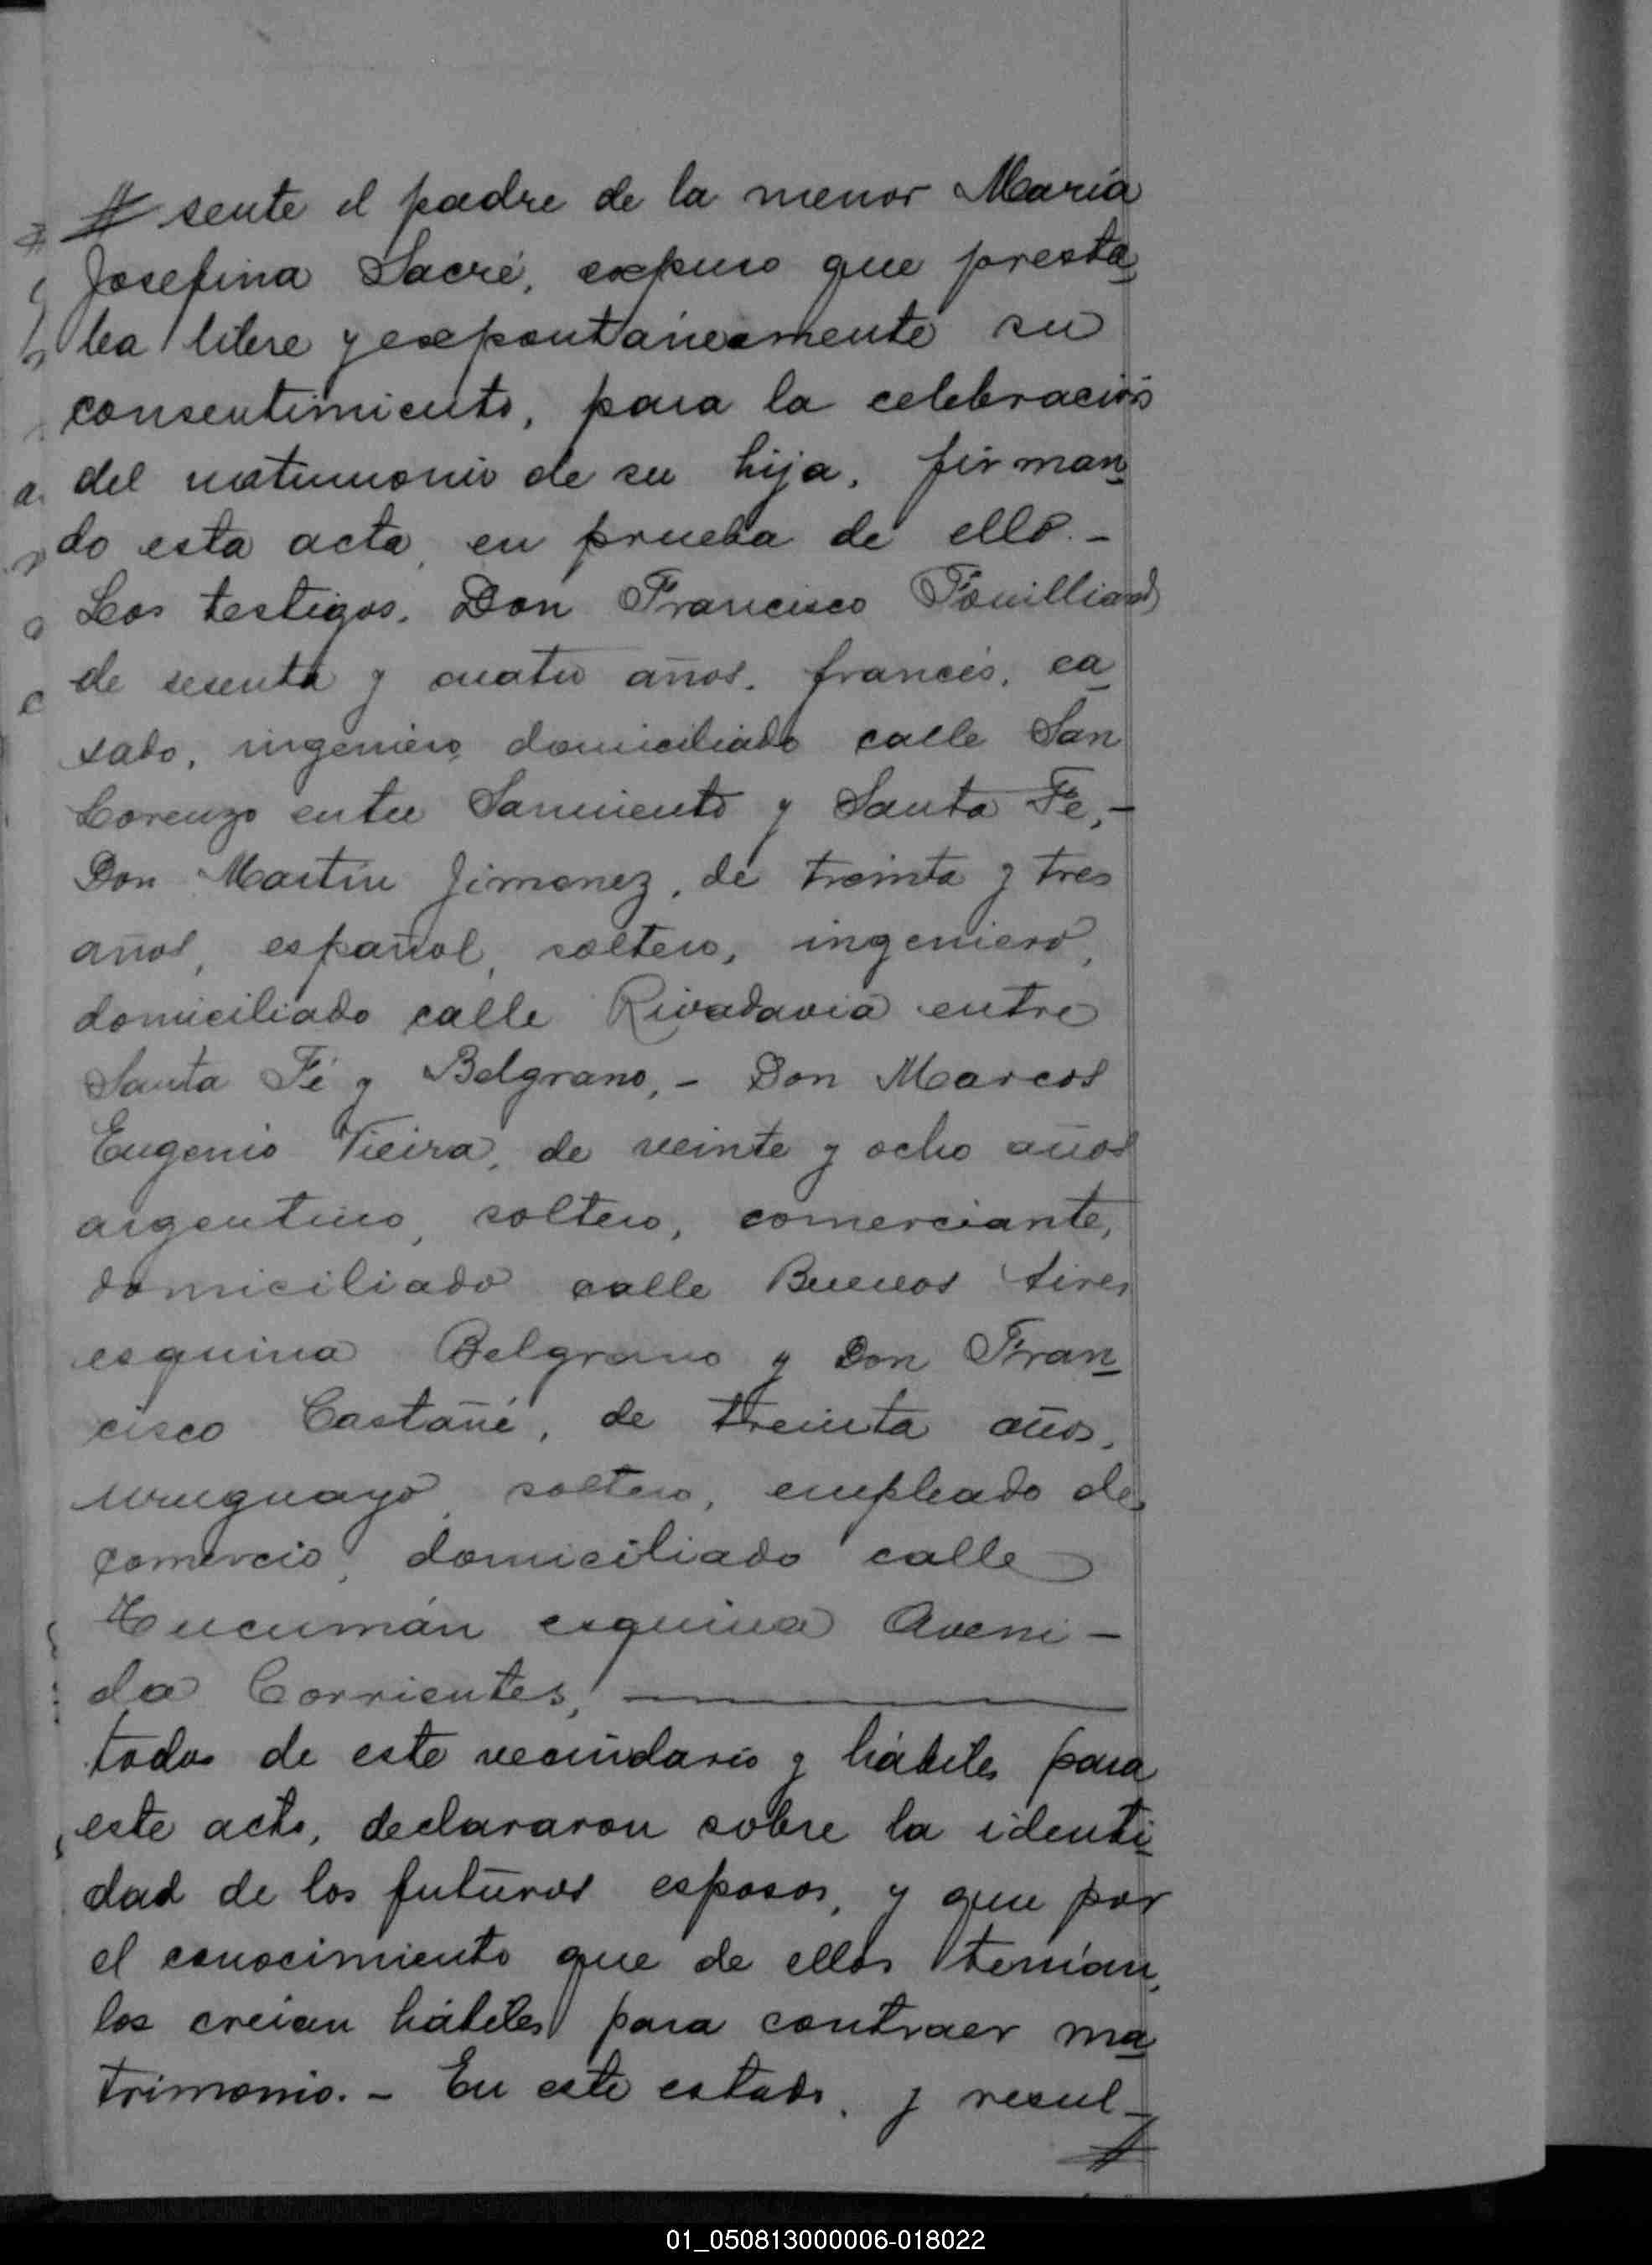 # sente el padre de la menor María
Josefina Sacré, expuso que presta
ba libre y expontáneamente su
consentimiento, para la celebración
del matrimonio de su hija, firman
do esta acta, en prueba de ello.-
Los testigos, Don Francisco
de sesenta y cuatro años, francés, ca
sado, ingeniero, domiciliado calle San
Lorenzo entre Sarmiento y Santa Fe,-
Don Martin Jimenez, de treinta y tres
años, español, soltero, ingeniero,
domiciliado calle Rivadavia entre
Santa Fé y Belgrano,- Don Marcos
Eugenio Vieira, de veinte y ocho años
argentino, soltero, comerciante,
domiciliado calle Buenos Aires
esquina Belgrano y Don Fran
cisco Castañé, de treinta años,
uruguayo, soltero, empleado de
comercio, domiciliado calle
Tucumán esquina Aveni-
da Corrientes,
todos de este vecindario y hábiles para
este acto, declararon sobre la identi
dad de los futuros esposos, y que por
el conocimiento que de ellos tenían,
los creían hábiles para contraer ma
trimonio.- En este estado, y resul-
#
01_050813000006-018022